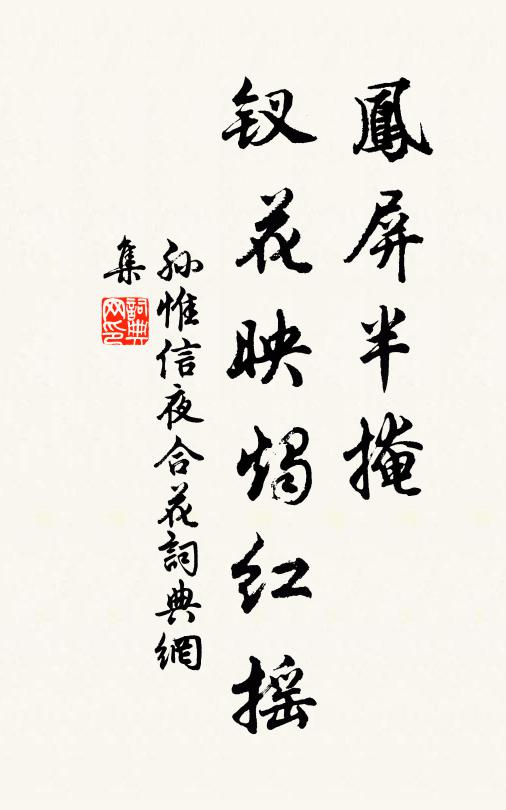 鳳屏半掩
釵花映燭紅摇
孙惟信夜合花詞典網
集
詞典
网印